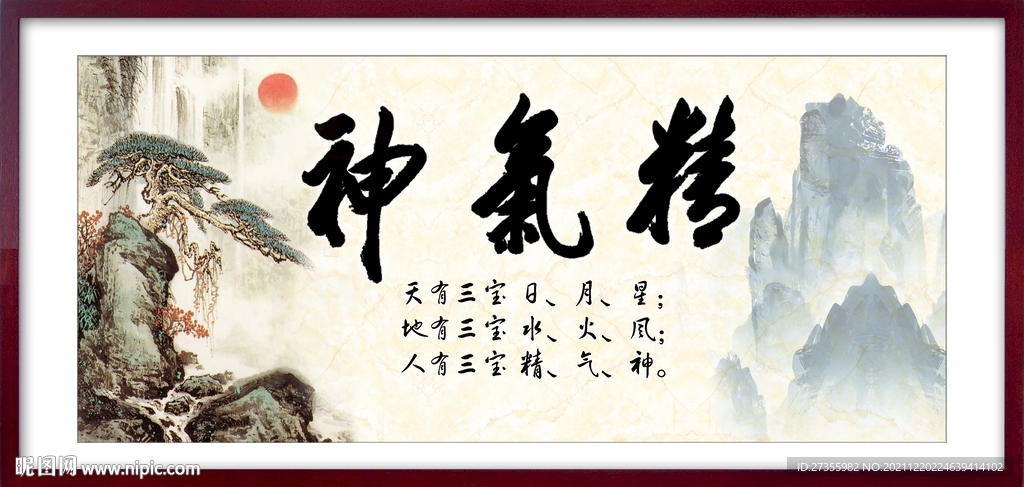 精氣神
天有三宝日、月、星；
地有三宝水、火、风；
人有三宝精、气、神。
昵图网 www.nipic.com
ID:27355982 NO.20211220224639414102